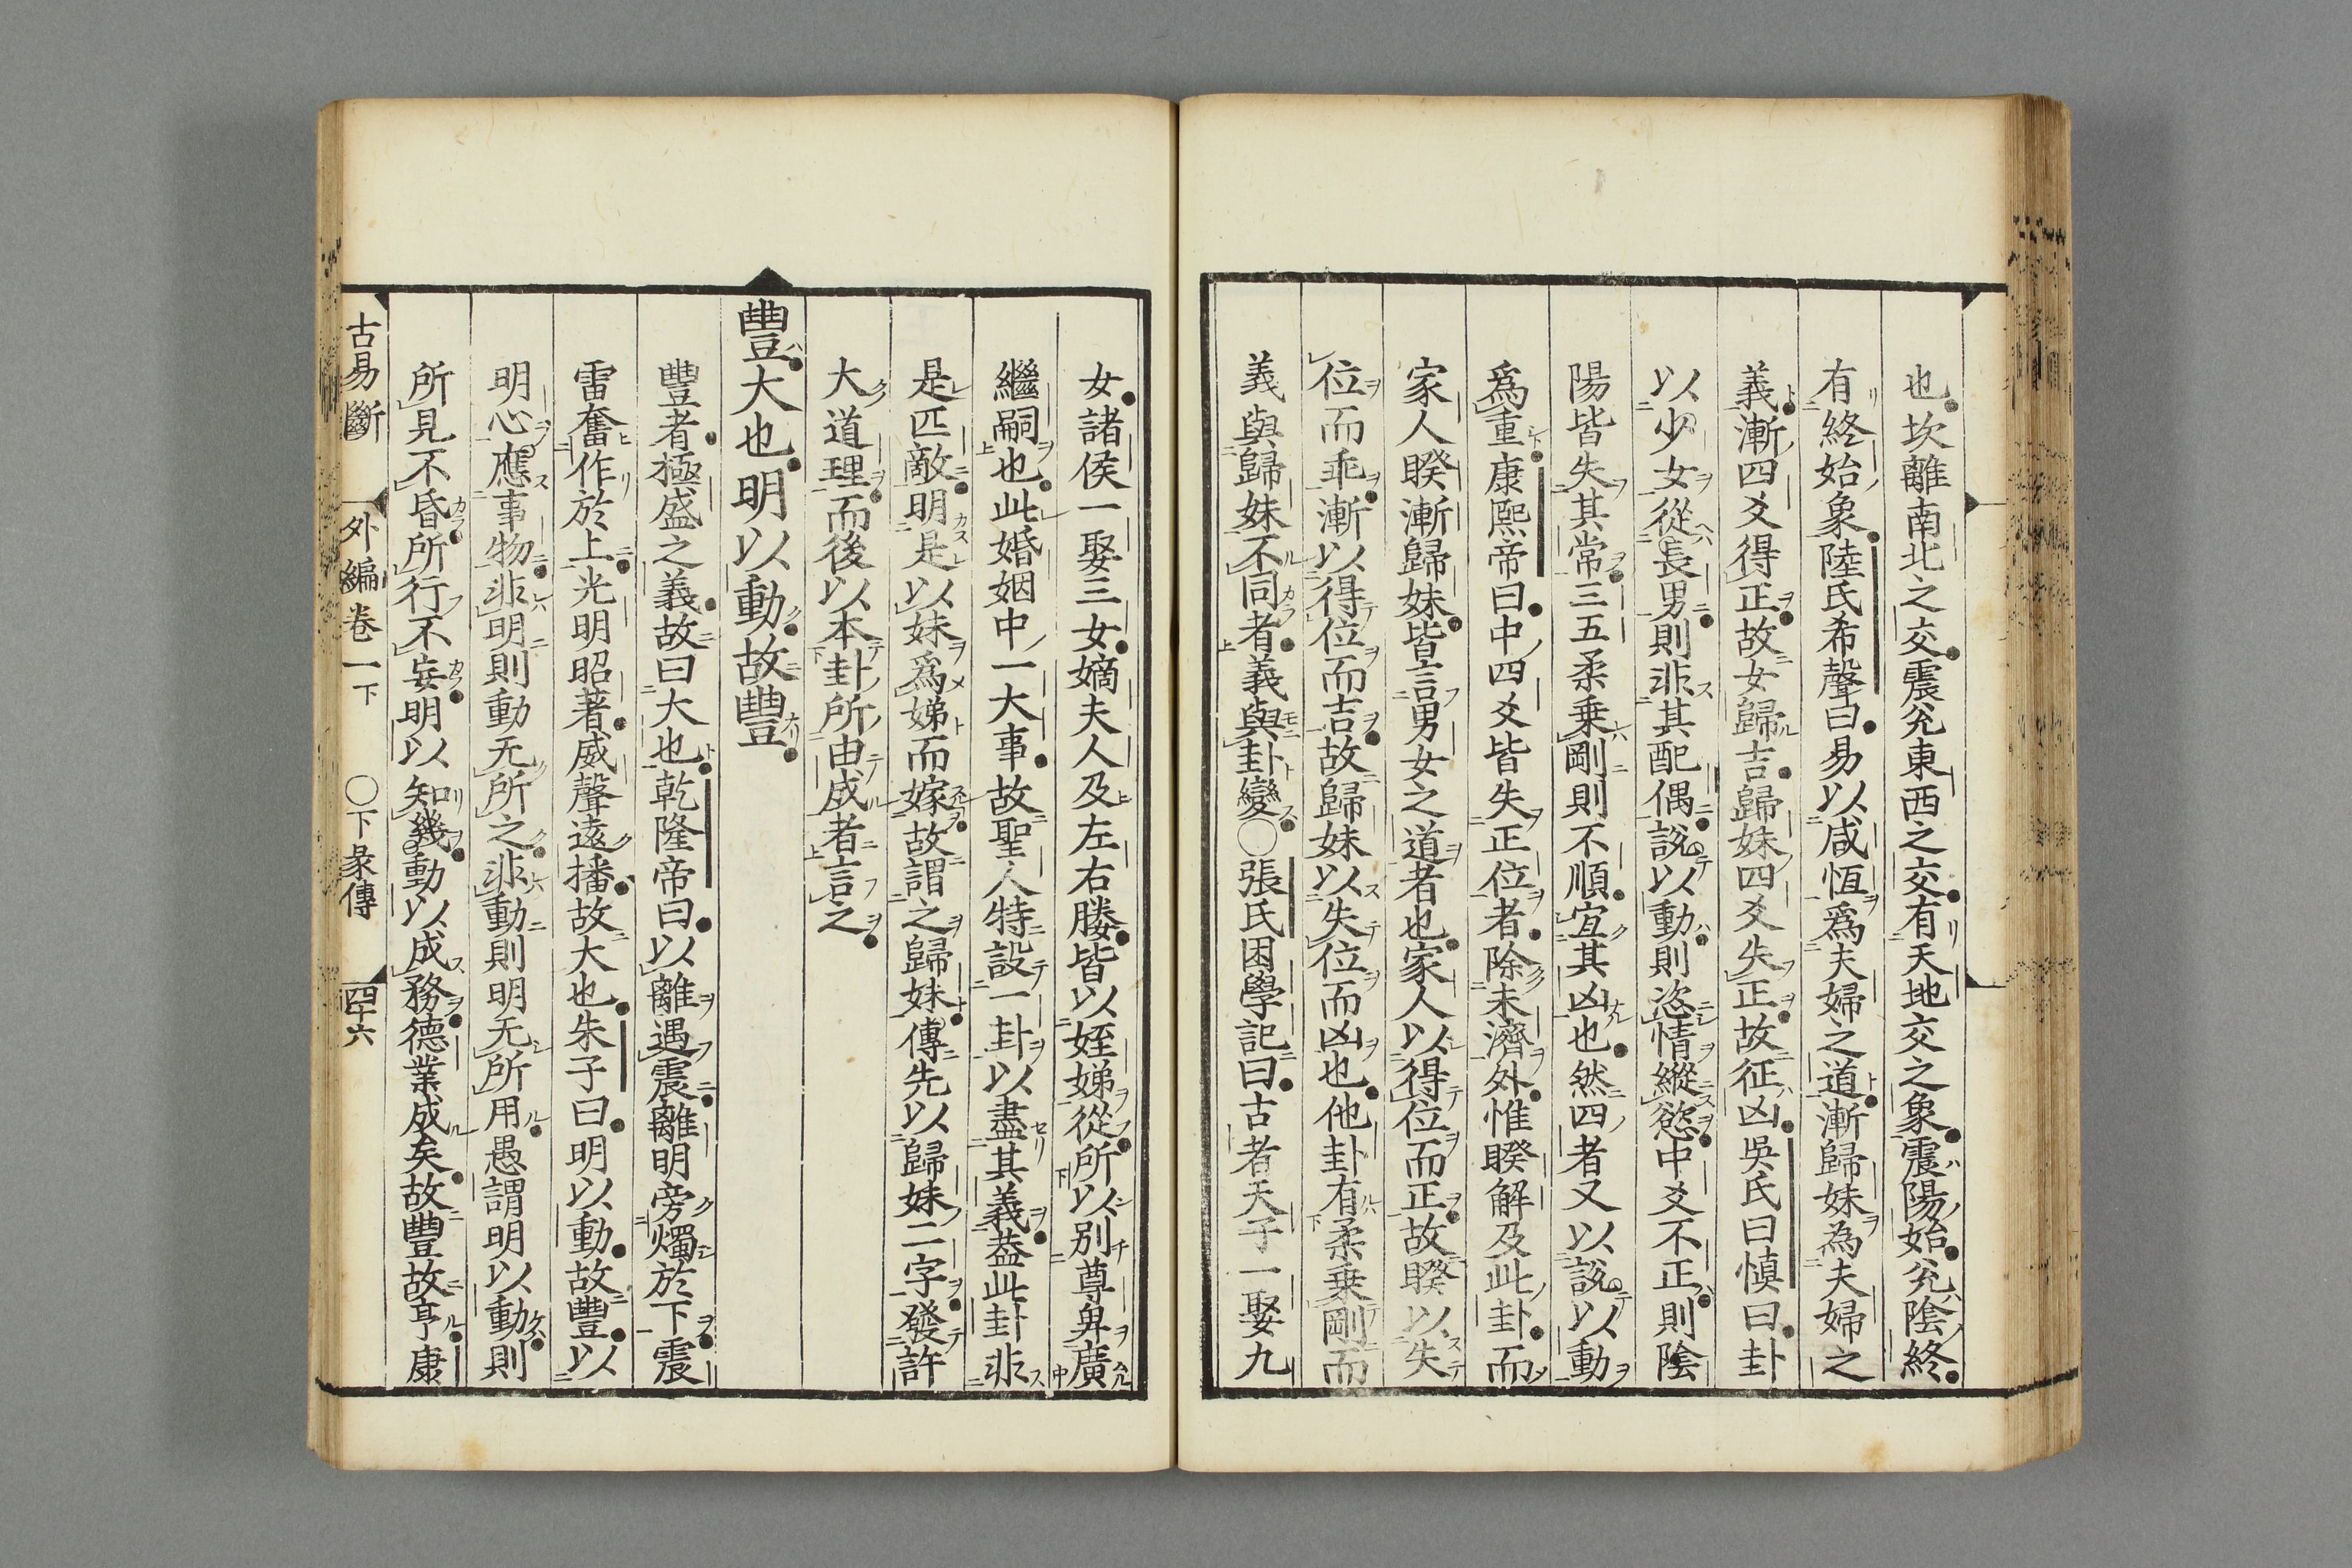 也坎離南北之交震兊東西之交有天地交之象震陽始兊陰終
有終始象陸氏希聲曰易以咸恆爲夫婦之道漸歸妹為夫婦之
義漸四爻得正故女歸吉歸妹四爻失正故征凶吳氏曰慎曰卦
以少女從長男則非其配偶說以動則恣情縱慾中爻不正則陰
陽皆失其常三五柔乗剛則不順宜其凶也然四者又以說以動
爲重康熙帝曰中四爻皆失正位者除未濟外惟睽解及此卦而
家人睽漸歸妹皆言男女之道者也家人以得位而正故睽以失
位而乖漸以得位而吉故歸妹以失位而凶也他卦有柔乗剛而
義與歸妹不同者義與卦變〇張氏困學記曰古者天子一娶九
女諸侯一娶三女嫡夫人及左右媵皆以姪娣從所以別尊卑廣
繼嗣也此婚姻中一大事故聖人特設一卦以盡其義葢此卦非
是匹敵明是以妹爲娣而嫁故謂之歸妹傳先以歸妹二字發許
大道理而後以本卦所由成者言之
豐大也明以動故豐
豐者極盛之義故曰大也乾隆帝曰以離遇震離明旁燭於下震
雷奮作於上光明昭著威聲遠播故大也朱子曰明以動故豐以
明心應事物非明則動无所之非動則明无所用愚謂明以動則
所見不昏所行不妄明以知幾動以成務德業成矣故豐故亨康
古易斷 外編卷一下 〇下彖傳 四十六